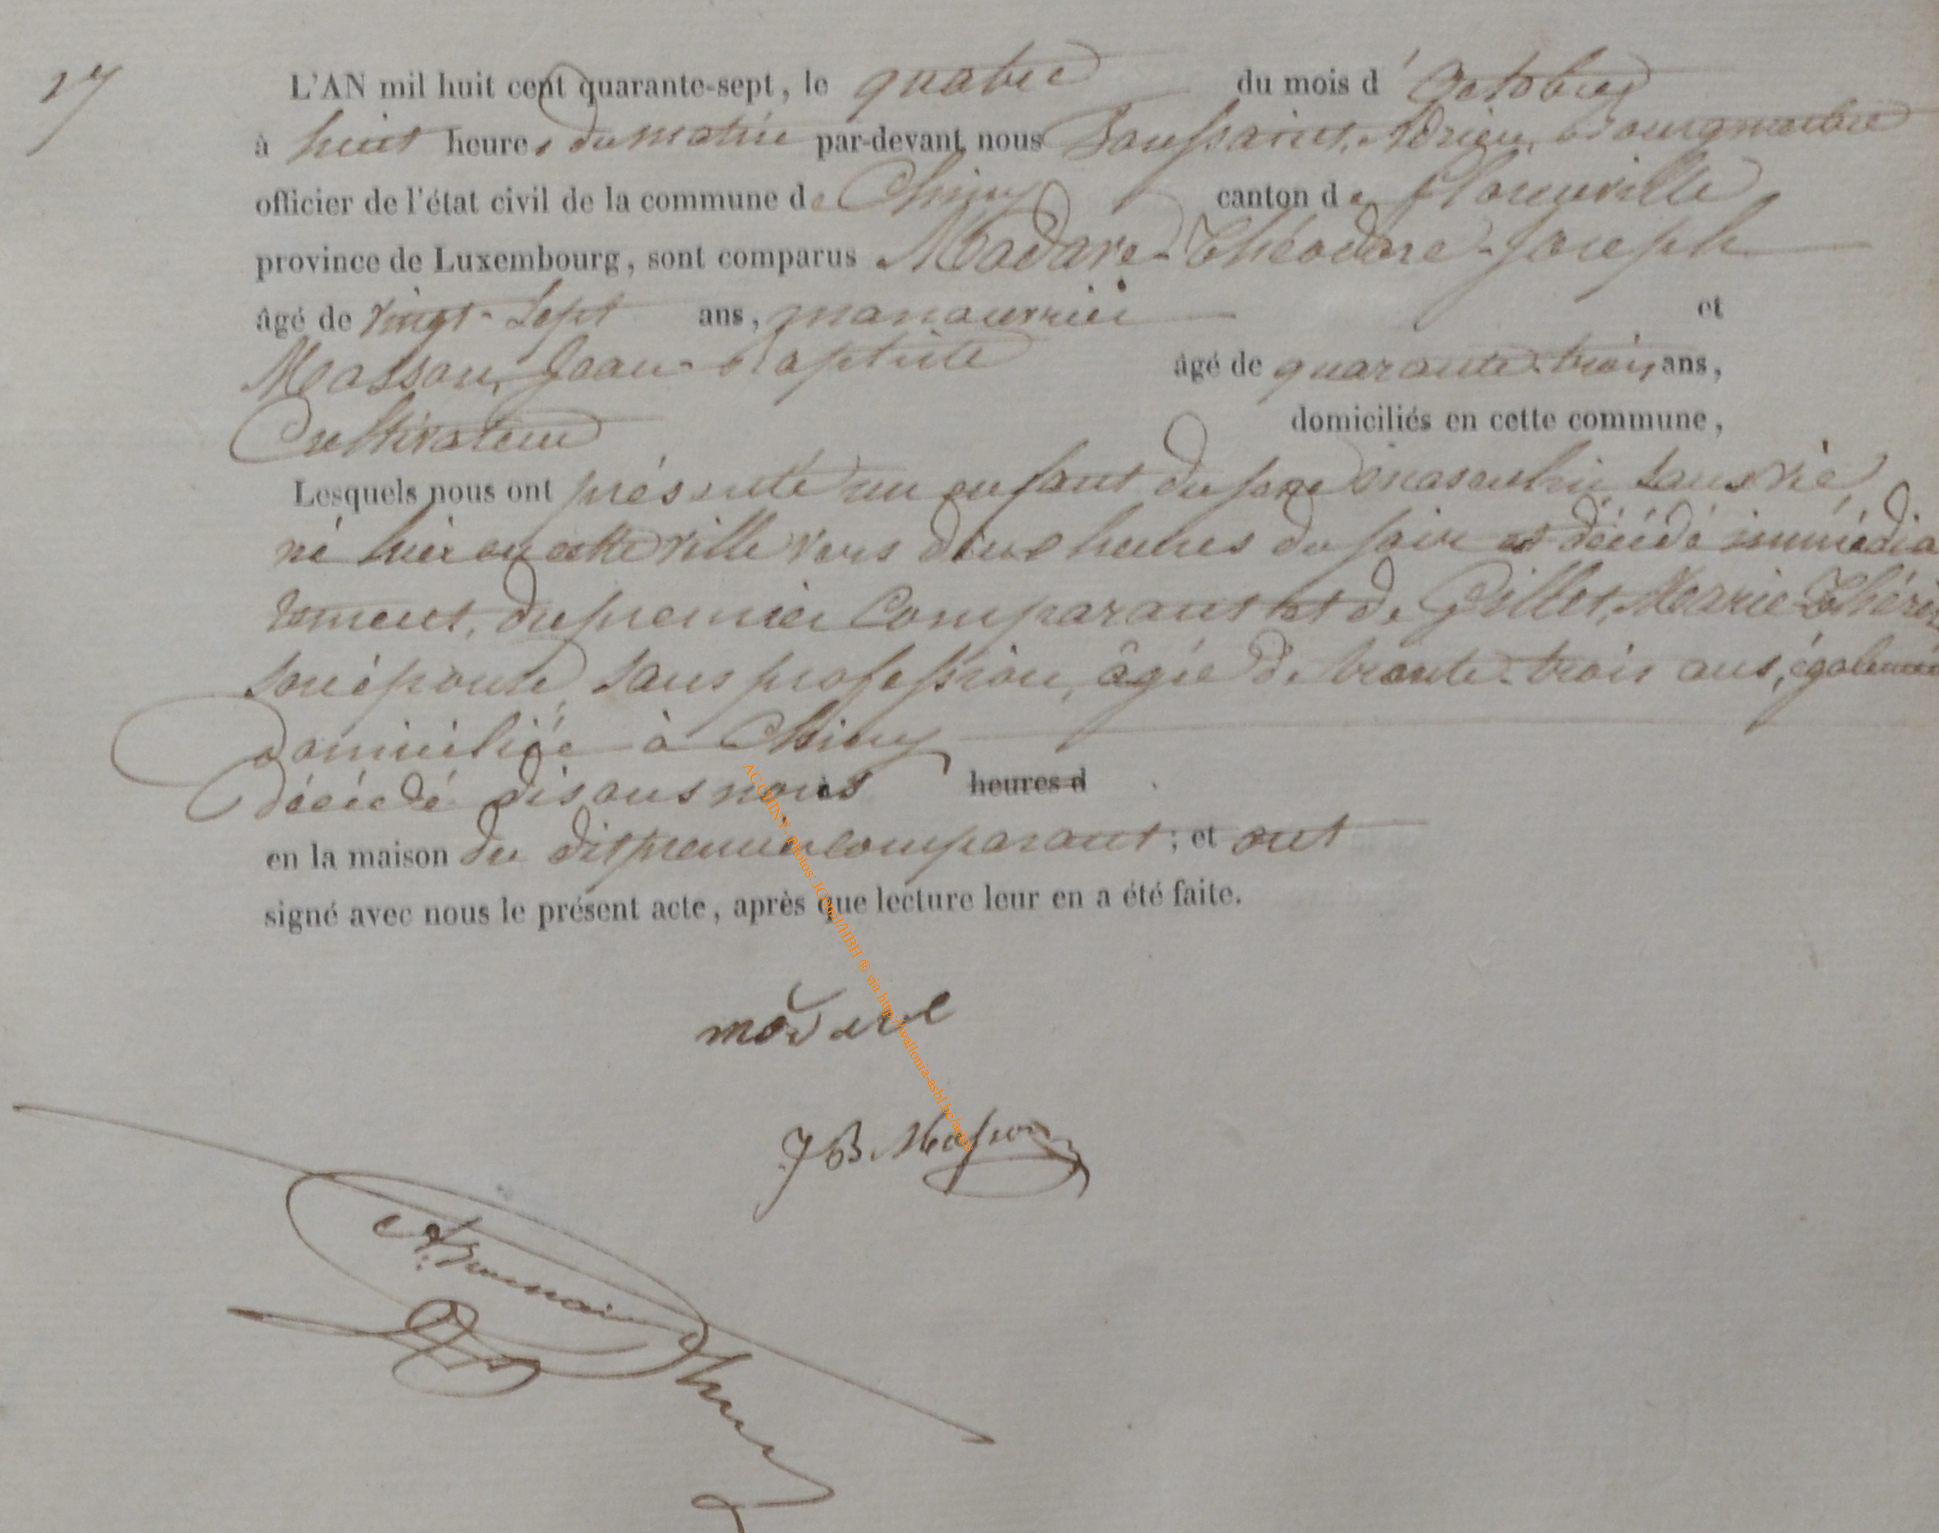 17
L'AN mil huit cent quarante-sept, le quatre du mois d'Octobre
à huit heures du matin par-devant nous Toussaint, Adrien, Bourgmestre
officier de l'état civil de la commune de Chiny canton de Florenville
province de Luxembourg, sont comparus Modave-Théodore-Joseph
âgé de vingt-sept ans, manouvrier et
Masson, Jean-Baptiste âgé de quarante-trois ans,
Cultivateur domiciliés en cette commune,
Lesquels nous ont présenté un enfant du sexe masculin sans vie
né hier en cette ville vers deux heures du soir et décédé immédia
tement, du premier Comparant et de Gillet, Marie-Thérèse
son épouse, sans profession, âgée de trente-trois ans, également
domiciliée à Chiny
décédé disons nous à heures d
en la maison du dit premier comparant; et ont
signé avec nous le présent acte, après que lecture leur en a été faite.
modave
JB Masson